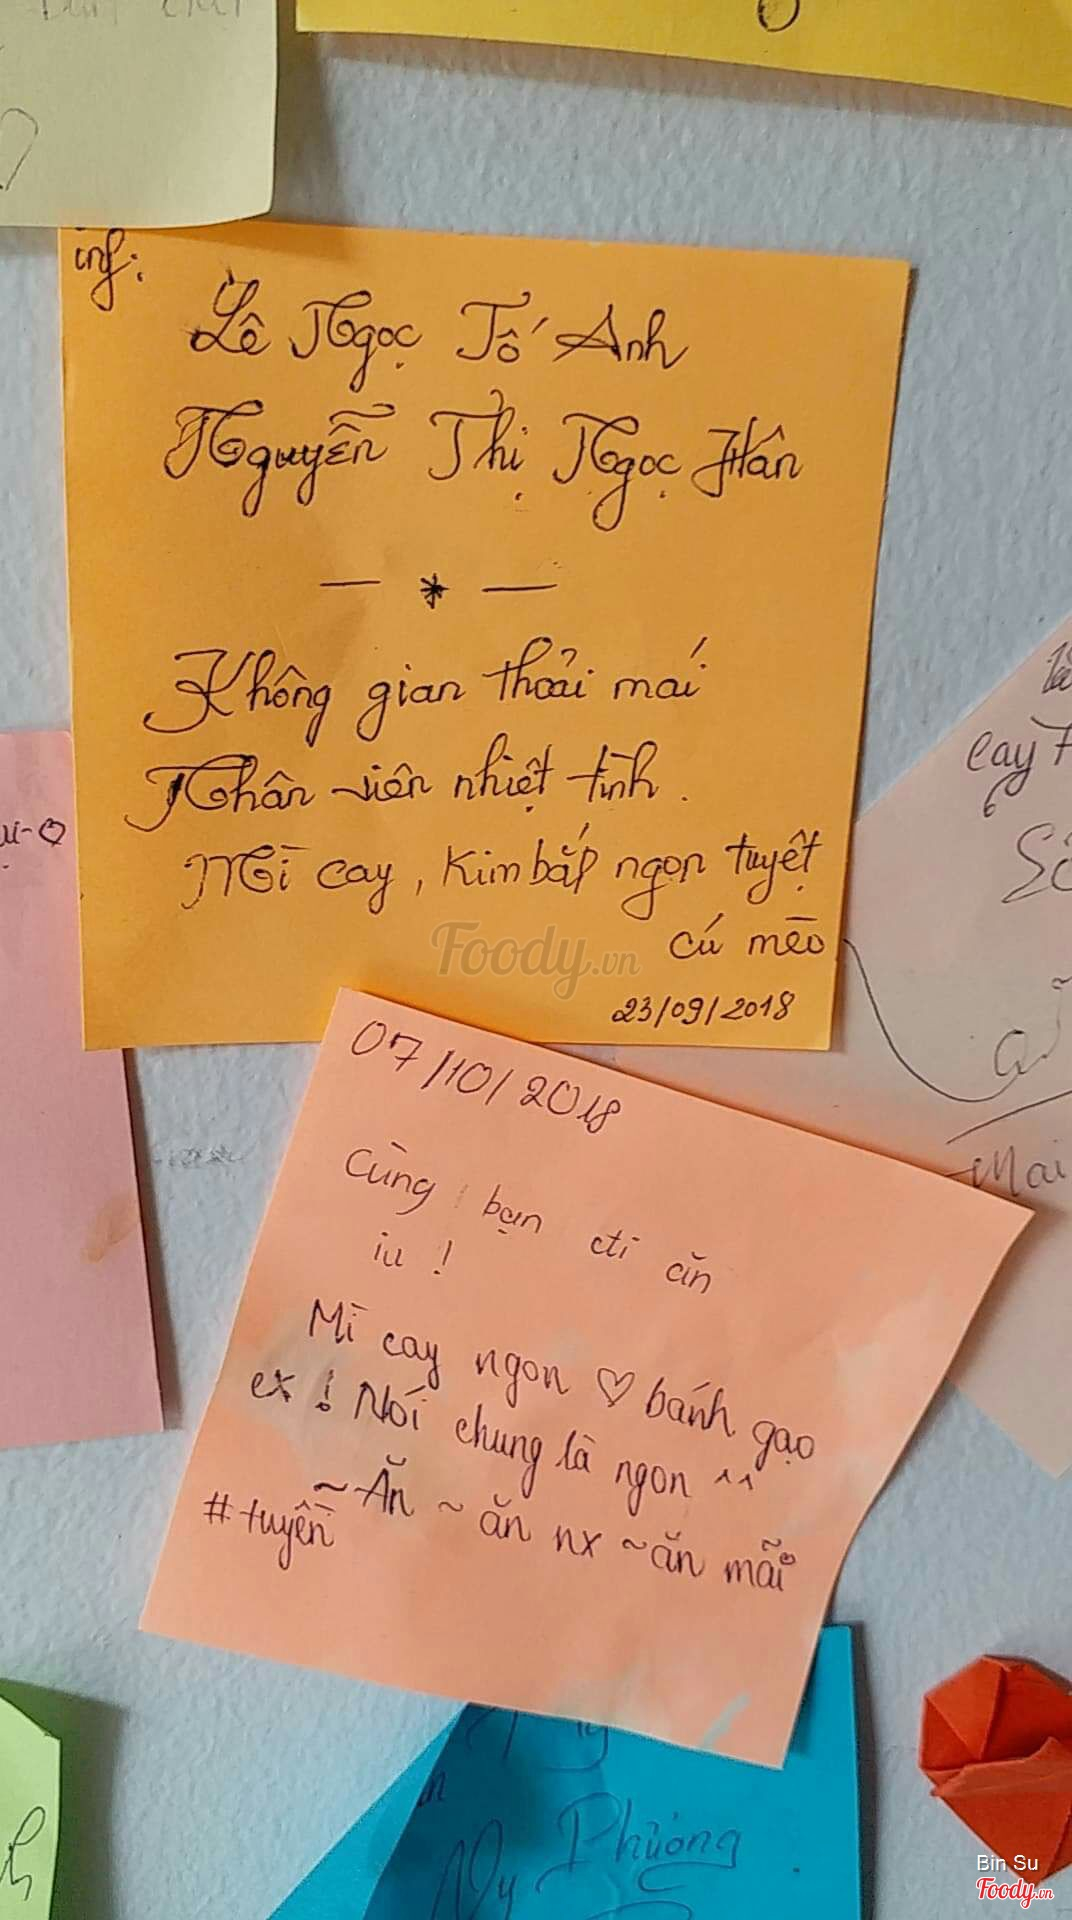 inf:
Lê Ngọc Tố Anh
Nguyễn Thị Ngọc Hân
— * —
Không gian thoải mái
Nhân viên nhiệt tình.
Mì cay, Kimbắp ngon tuyệt
cú mèo
23/09/2018
Foody.vn
07/10/2018
Cùng bạn đi ăn
iu !
Mì cay ngon ♡ bánh gạo
ex ! Nói chung là ngon ^^
~ Ăn ~ ăn nx ~ ăn mãi
#tuyền
cay
Mai
Phương
Ny
Bin Su
Foody.vn